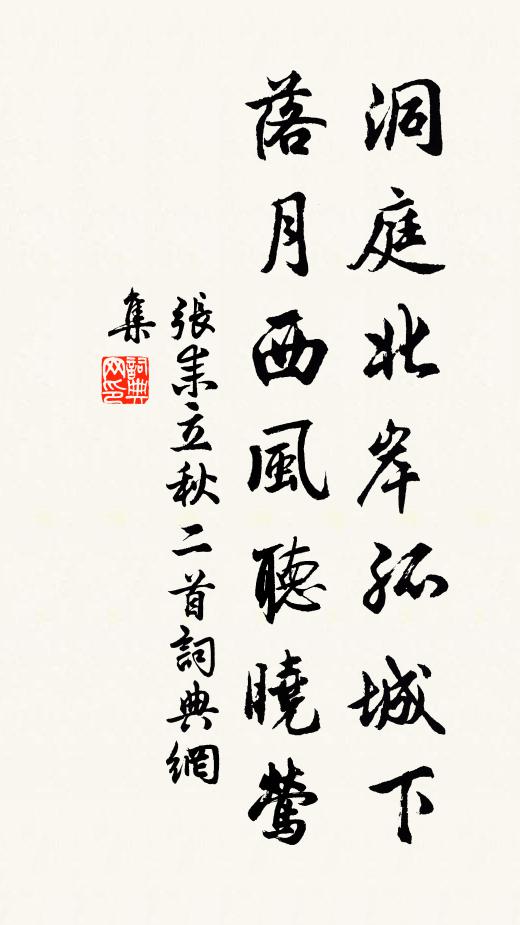 洞庭北岸孤城下
落月西風聽曉鶯
張耒立秋二首詞典網
集
詞典
网印